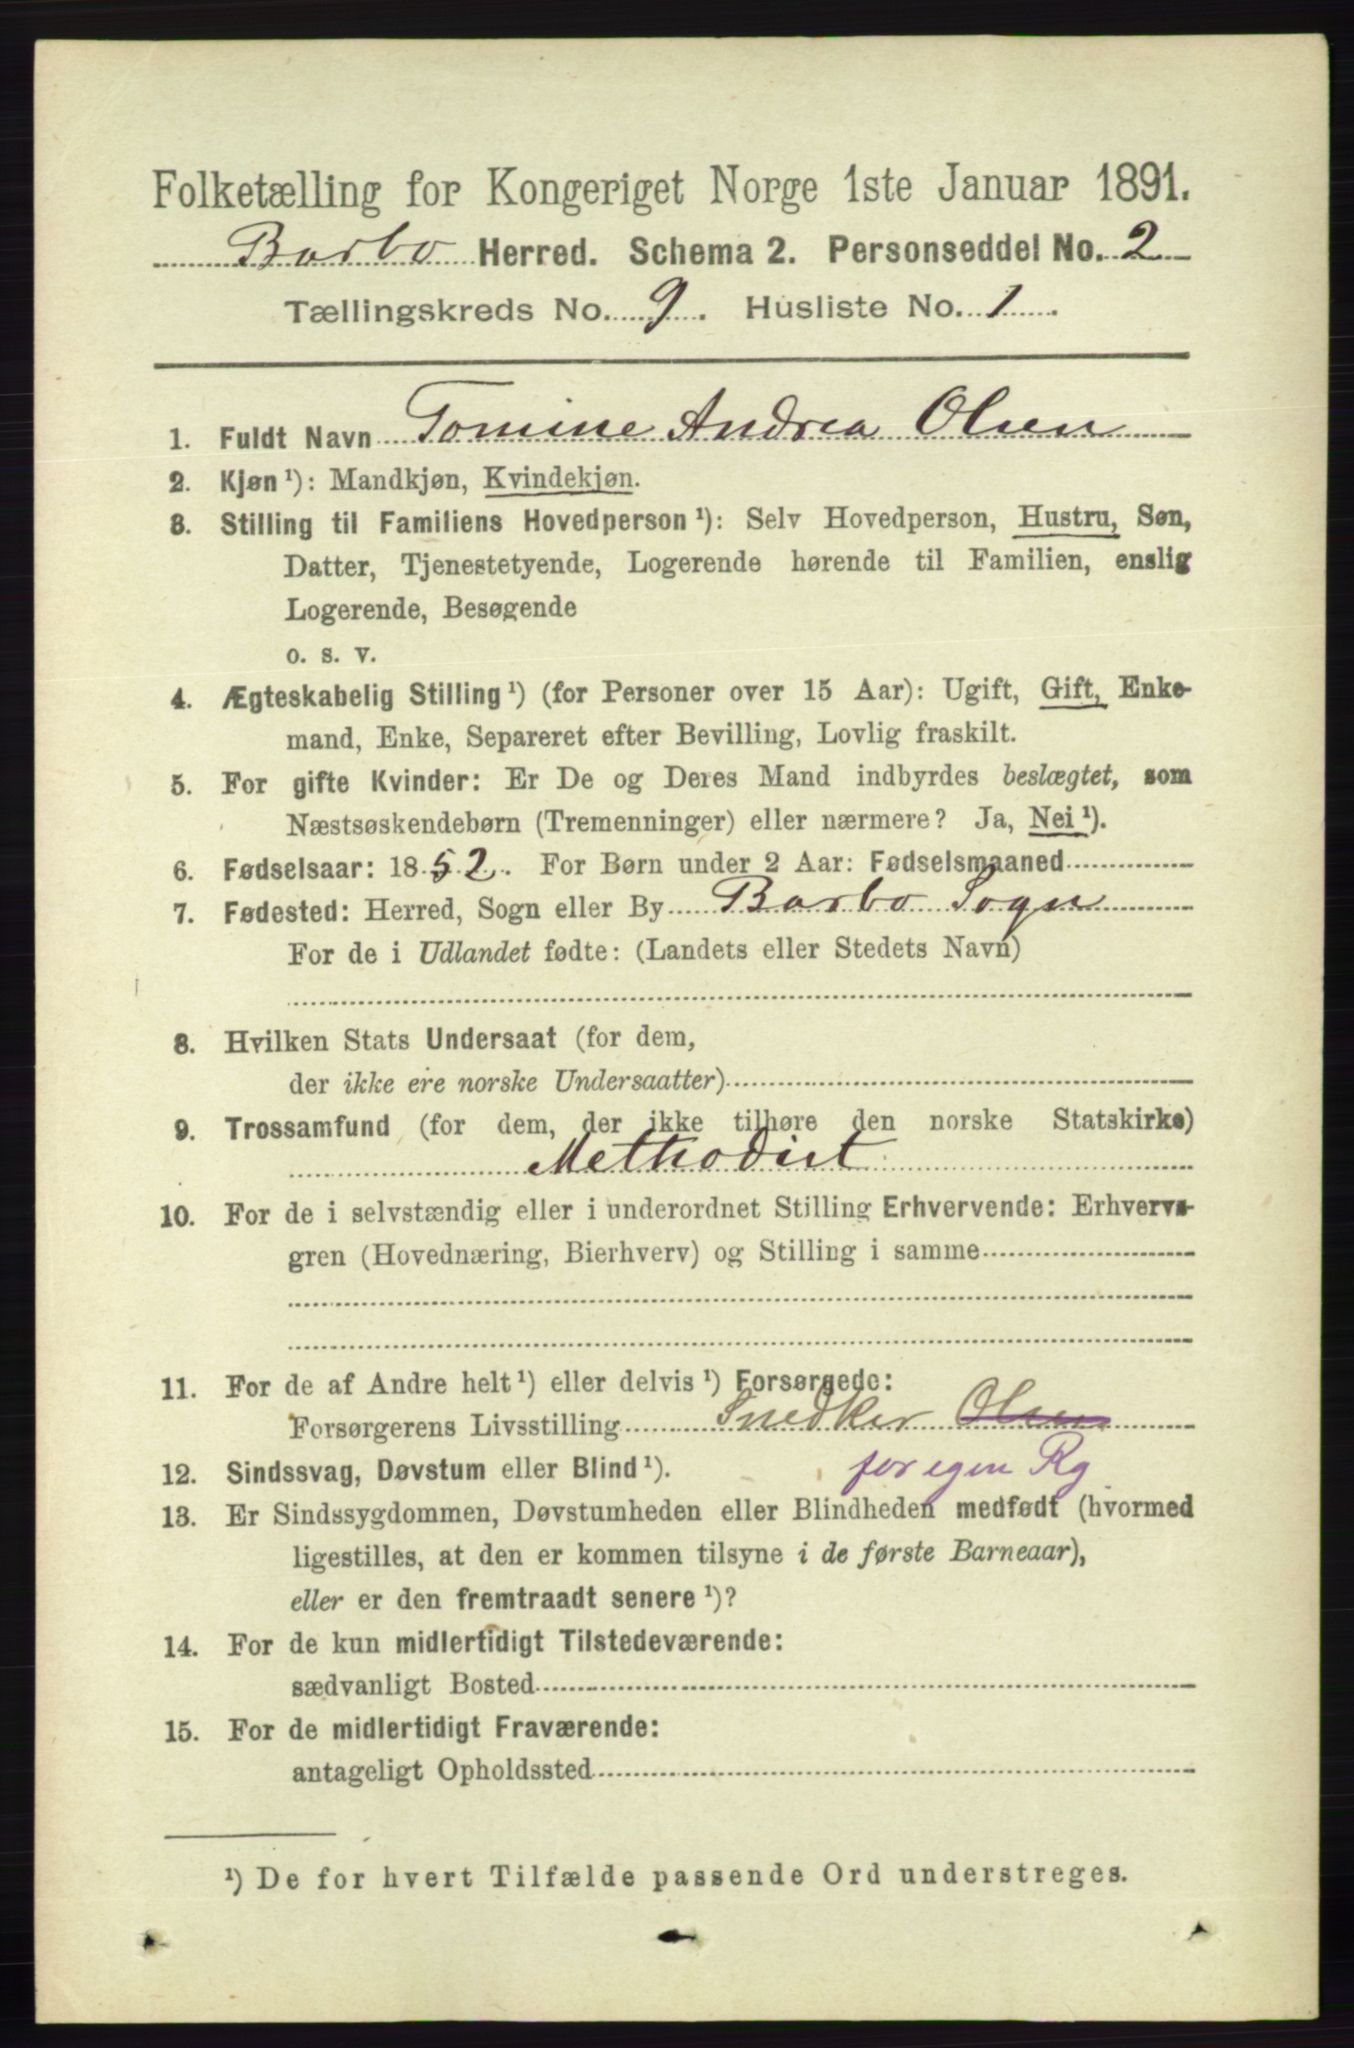 Folketælling for Kongeriget Norge 1ste Januar 1891.
Barbo Herred. Schema 2. Personseddel No. 2
Tællingskreds No. 9. Husliste No. 1.
1. Fuldt Navn Tomine Andrea Olsen
2. Kjøn ¹): Mandkjøn, Kvindekjøn.
3. Stilling til Familiens Hovedperson ¹): Selv Hovedperson, Hustru, Søn,
Datter, Tjenestetyende, Logerende hørende til Familien, enslig
Logerende, Besøgende
o. s. v.
4. Ægteskabelig Stilling ¹) (for Personer over 15 Aar): Ugift, Gift, Enke-
mand, Enke, Separeret efter Bevilling, Lovlig fraskilt.
5. For gifte Kvinder: Er De og Deres Mand indbyrdes beslægtet, som
Næstsøskendebørn (Tremenninger) eller nærmere? Ja, Nei ¹).
6. Fødselsaar: 1852. For Børn under 2 Aar: Fødselsmaaned
7. Fødested: Herred, Sogn eller By Barbo Sogn
For de i Udlandet fødte: (Landets eller Stedets Navn)
8. Hvilken Stats Undersaat (for dem,
der ikke ere norske Undersaatter)
9. Trossamfund (for dem, der ikke tilhøre den norske Statskirke)
Methodist
10. For de i selvstændig eller i underordnet Stilling Erhvervende: Erhvervs-
gren (Hovednæring, Bierhverv) og Stilling i samme
11. For de af Andre helt ¹) eller delvis ¹) Forsørgede:
Forsørgerens Livsstilling Snedker Olsen
12. Sindssvag, Døvstum eller Blind ¹). for egen Rg
13. Er Sindssygdommen, Døvstumheden eller Blindheden medfødt (hvormed
ligestilles, at den er kommen tilsyne i de første Barneaar),
eller er den fremtraadt senere ¹)?
14. For de kun midlertidigt Tilstedeværende:
sædvanligt Bosted
15. For de midlertidigt Fraværende:
antageligt Opholdssted
¹) De for hvert Tilfælde passende Ord understreges.